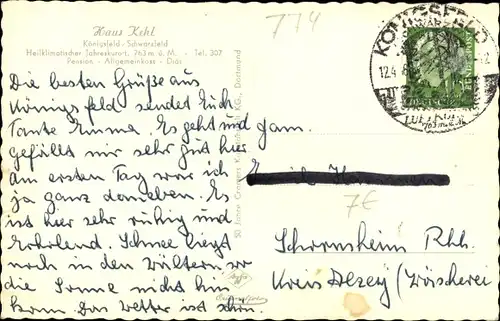 Haus Kehl
Königsfeld - Schwarzwald
Heilklimatischer Jahreskurort, 763 m ü. M. - Tel. 307
Pension - Allgemeinkost - Diät
774
KÖNIGSFELD
12.4
LUFTKURORT
763 m ü. M.
Die besten Grüße aus
Königsfeld sendet Euch
Tante Emma. Es geht und
gefällt mir sehr gut hier
am ersten Tag war ich
ja ganz daneben. Es
ist hier sehr ruhig und
Erholend. Schnee liegt
noch in den Wältern wo
die Sonne nicht hin
kann. Das Wetter ist schön.
Fam.
7€
Schornsheim Rhh.
Kreis Alzey (Wäscherei
50 Jahre Cramers Kunstanstalt AG., Dortmund